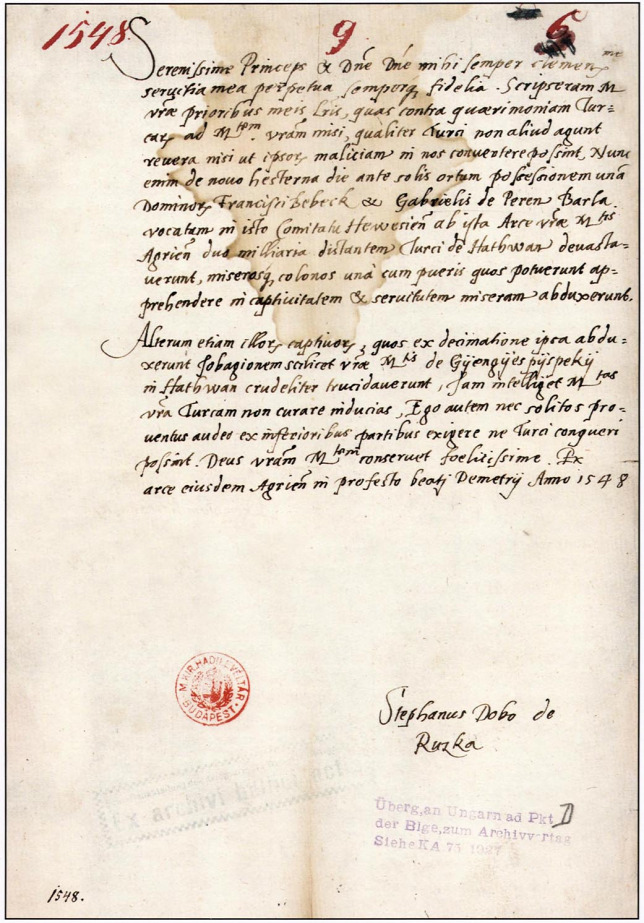 1548.
9
6
Serenissime Princeps & Dñe Dñe mihi semper clemen^me
servitia mea perpetua semperq, fidelia. Scripseram M
vr̃ae prioribus meis Lr̃is, quas contra quaerimoniam Tur=
car, ad M^tem. vram̃ misi, qualiter Turci non aliud agunt
revera nisi ut ipsor, maliciam in nos convertere possint, Nunc
enim de novo hesterna die ante solis ortum possessionem unã
Dominor, Francisci Bebeck & Gabrielis de Peren Barla
vocatam in isto Comitatu Hewesien̄ ab ista Arce vr̃ae M^tis
Agrien̄ duo milliaria distantem Turci de Hathwan devasta=
verunt, miserosq, colonos unà cum pueris quos potuerunt ap=
prehendere in captivitatem & servitutem miseram abduxerunt.
Alterum etiam illor, captivor, quos ex decimatione ipsa abdu=
xerunt Jobagionem scilicet vr̃ae M^tis de Gyengyespyspeky
in Hathwan crudeliter trucidaverunt, Jam intelliget M^tas
vr̃a Turcam non curare inducias, Ego autem nec solitos pro=
ventus audeo ex inferioribus partibus exigere ne Turci conqueri
possint. Deus vram̃ M^tem conservet foelicissime. Ex
arce eiusdem Agrien̄ in profesto beati Demetrij Anno 1548
M. KIR. HADILEVÉLTÁR
BUDAPEST
Stephanus Dobo de
Ruzka
Ex archivi
Überg,an Ungarn ad Pkt D
der Blge,zum Archivvertag
Siehe KA 75 1927
1548.